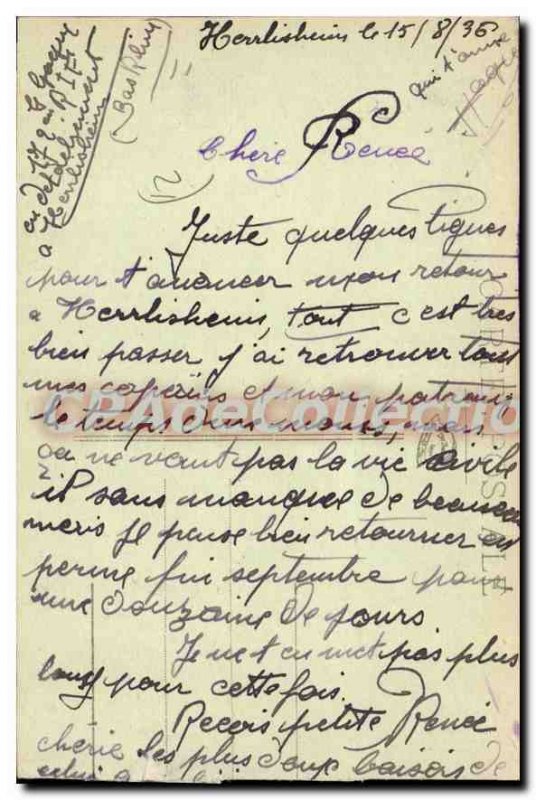 Herrlisheim le 15/8/36
(Bas Rhin)
Chère Renée
Juste quelques lignes
pour t'anoncer mon retour
a Herrlisheim, tout c'est tres
bien passer j'ai retrouver tout
mes copains et mon
le temps mais
ça ne vaut pas la vie civile
il sans manque de beaucou
mais je pense bien retourner en
perme fin septembre pour
une douzaine de jours
Je ne t'en met pas plus
long pour cette fois.
Reçois petite Renée
chérie les plus doux baisers de
celui
qui t'aime
a Herrlisheim
CPADeCollection